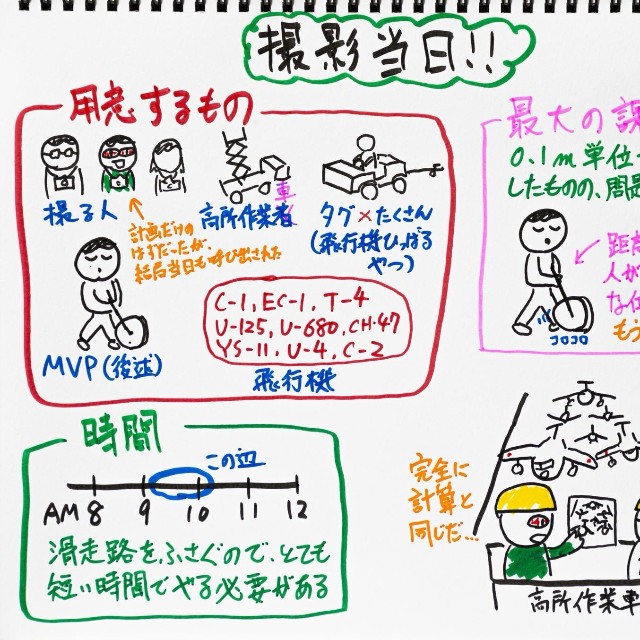 撮影当日!!
用意するもの
撮る人
計画だけの
はずだったが、
結局当日も呼び出された
高所作業者
車
タグ×たくさん
(飛行機ひっぱる
やつ)
MVP(後述)
C-1, EC-1, T-4
U-125, U-680, CH-47
YS-11, U-4, C-2
飛行機
時間
この辺
AM 8 9 10 11 12
滑走路をふさぐので、とても
短い時間でやる必要がある
最大の課
0.1m単位
したものの、問題
距離
人が
な仕
もう
コロコロ
完全に
計算と
同じだ...
高所作業車